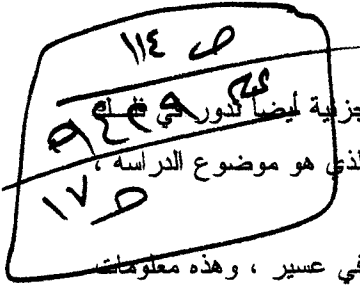 ص ١١٤
جزئية أيضاً تدور في
الذي هو موضوع الدراسه ،
ص ١٧
في عسير ، وهذه معلومات